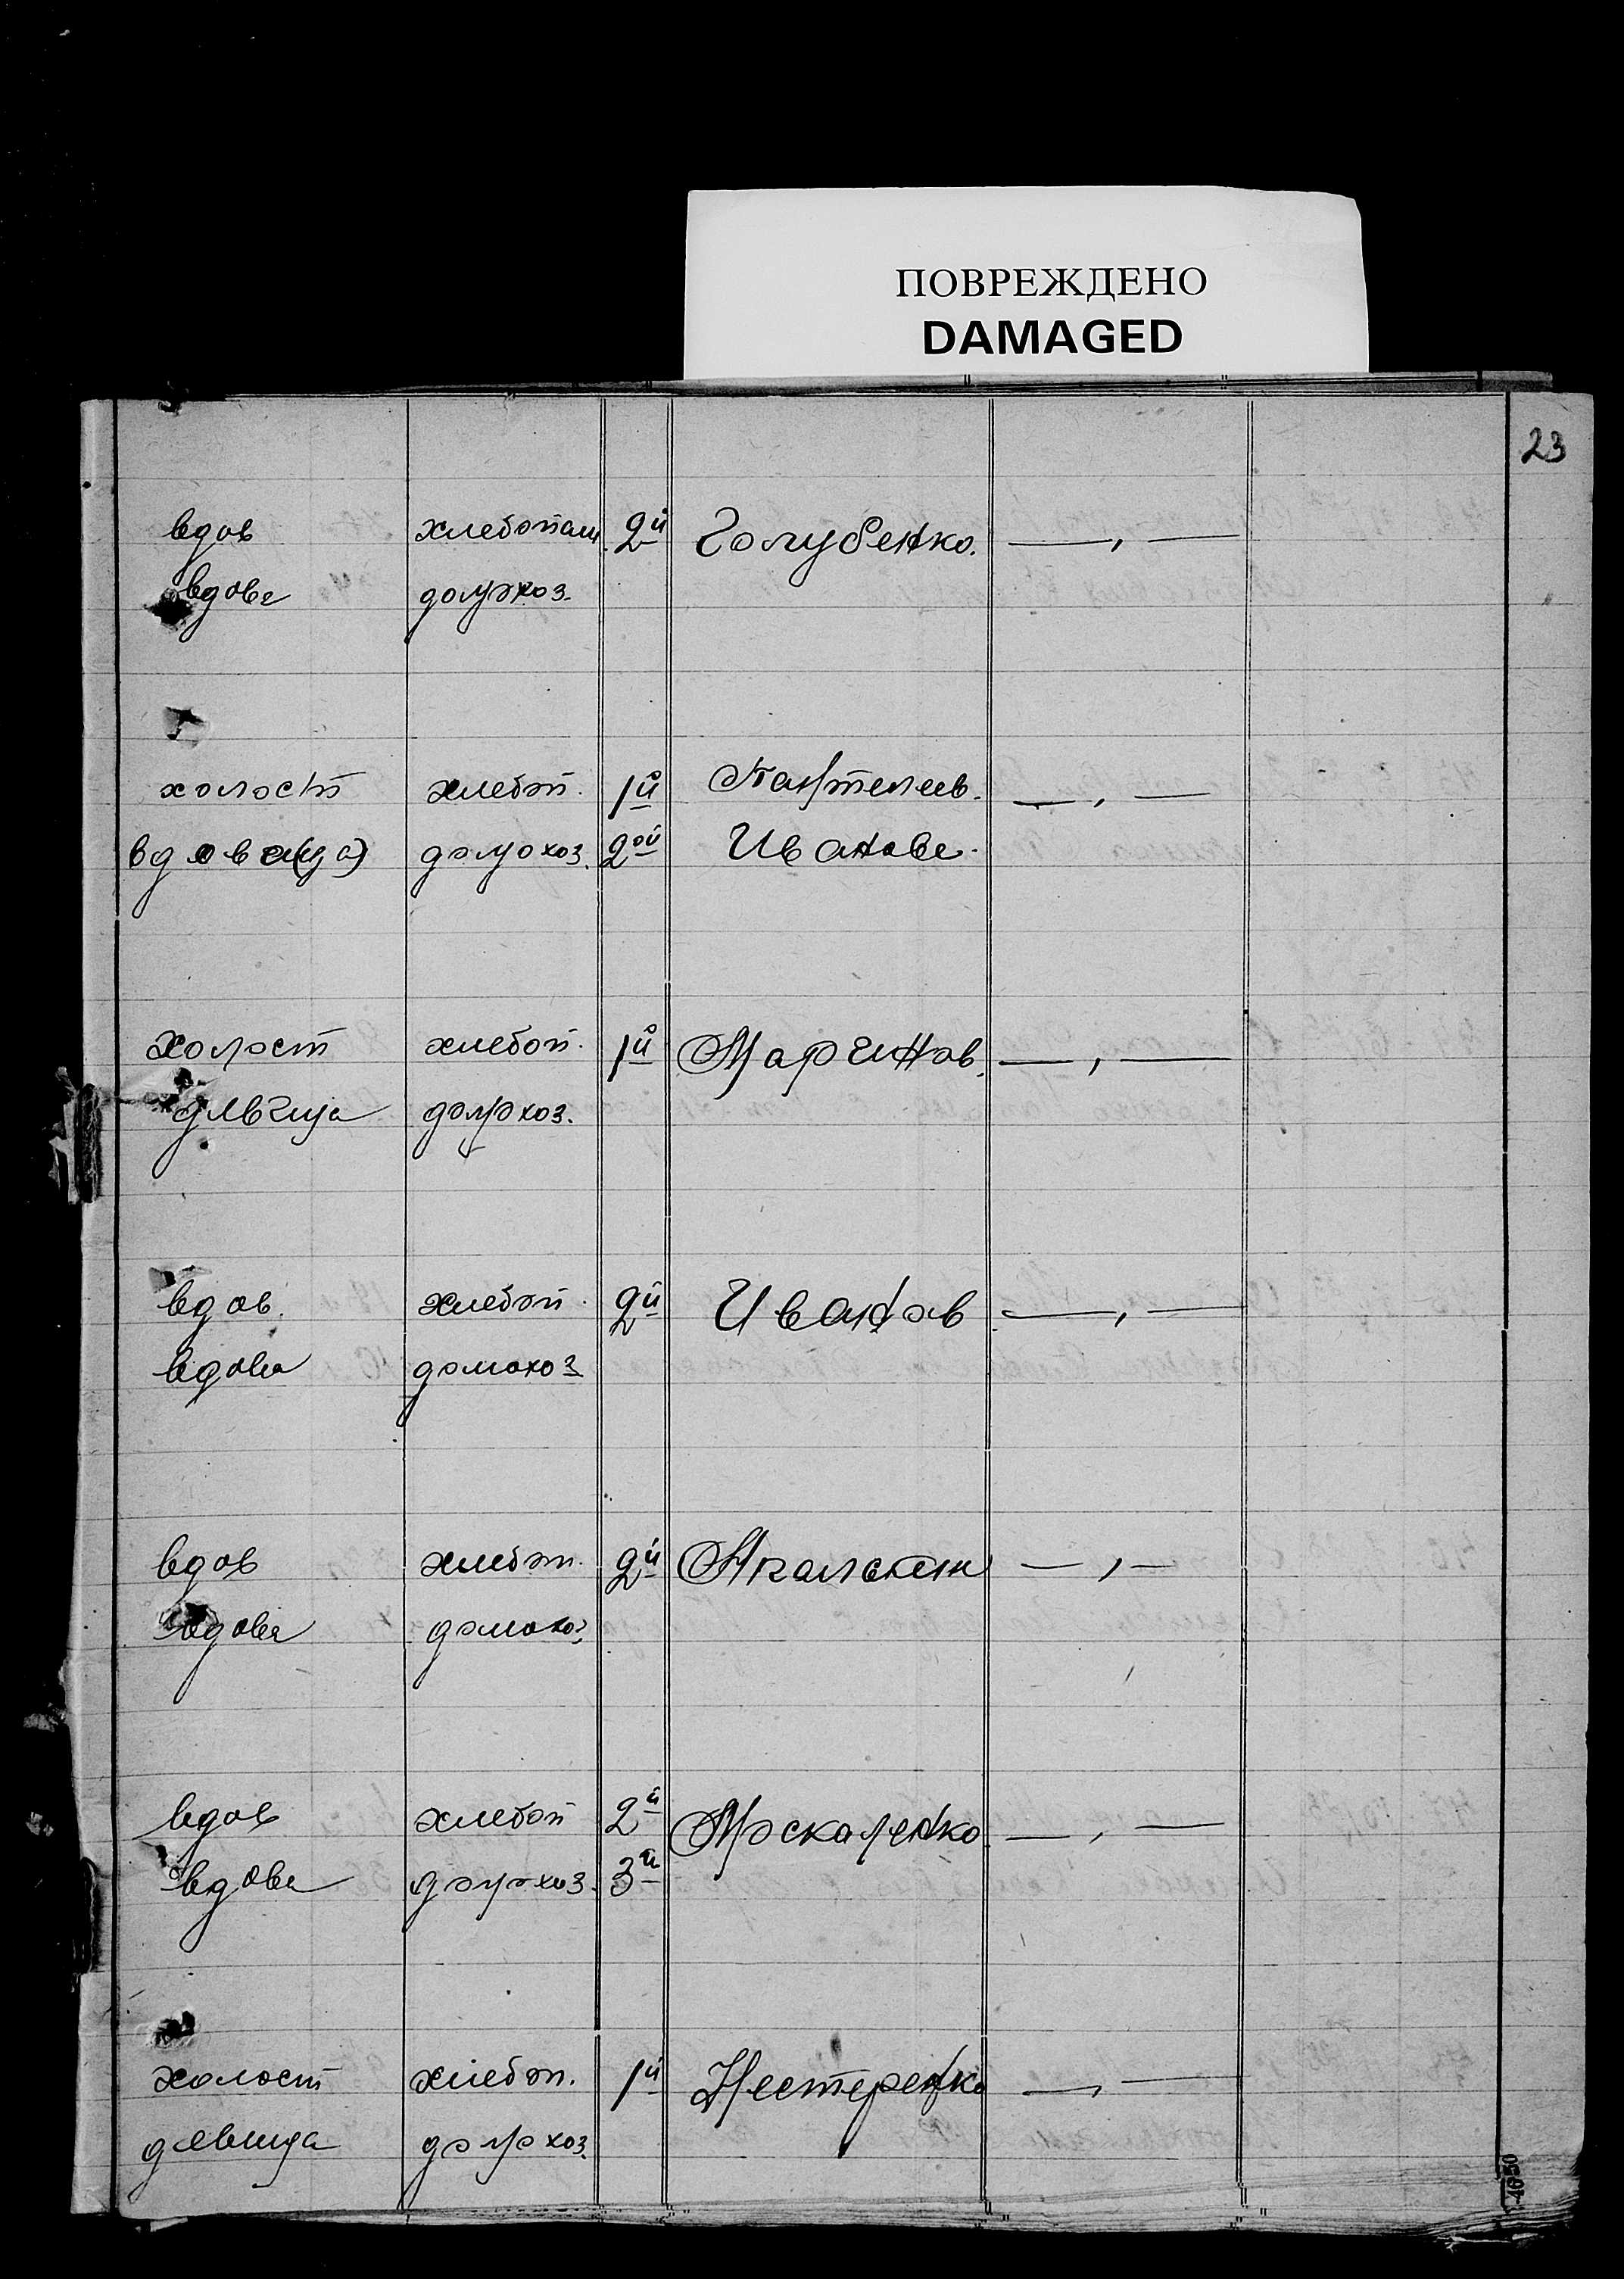 ПОВРЕЖДЕНО
DAMAGED
23
вдов хлебопаш. 2й Голубенко. — , —
вдова домохоз.
холост хлебоп. 1й Пантелеев. — , —
вдова(ца) домохоз. 2ой Иванова.
холост хлебоп. 1й Маринов. — , —
девица домохоз.
вдов. хлебоп. 2й Иванов. — , —
вдова домохоз
вдов хлебоп. 2й — , —
вдова домохоз.
вдов хлебоп 2й Москаленко. — , —
вдова домохоз. 3й
холост хлебоп. 1й Нестеренко — , —
девица домохоз.